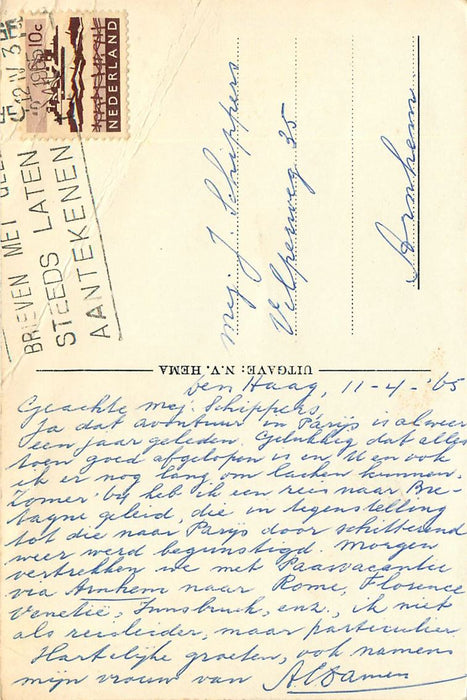 10c
NEDERLAND
12.IV
1965
BRIEVEN MET GELD
STEEDS LATEN
AANTEKENEN
mej. J. Schippers
Velperweg 35
Arnhem
UITGAVE: N.V. HEMA
Den Haag, 11-4-'65
Geachte mej. Schippers,
Ja dat avontuur in Parijs is alweer
een jaar geleden. Gelukkig dat alles
toen goed afgelopen is en U en ook
ik er nog lang om lachen kunnen.
Zomer '64 heb ik een reis naar Bre-
tagne geleid, die in tegenstelling
tot die naar Parijs door schitterend
weer werd begunstigd. Morgen
vertrekken we met Paasvacantie
via Arnhem naar Rome, Florence
Venetië, Innsbruck, enz., ik niet
als reisleider, maar particulier
Hartelijke groeten, ook namens
mijn vrouw van